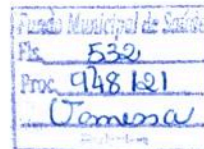 Fundo Municipal de Saúde
Fls. 532
Proc. 948121
Vanessa